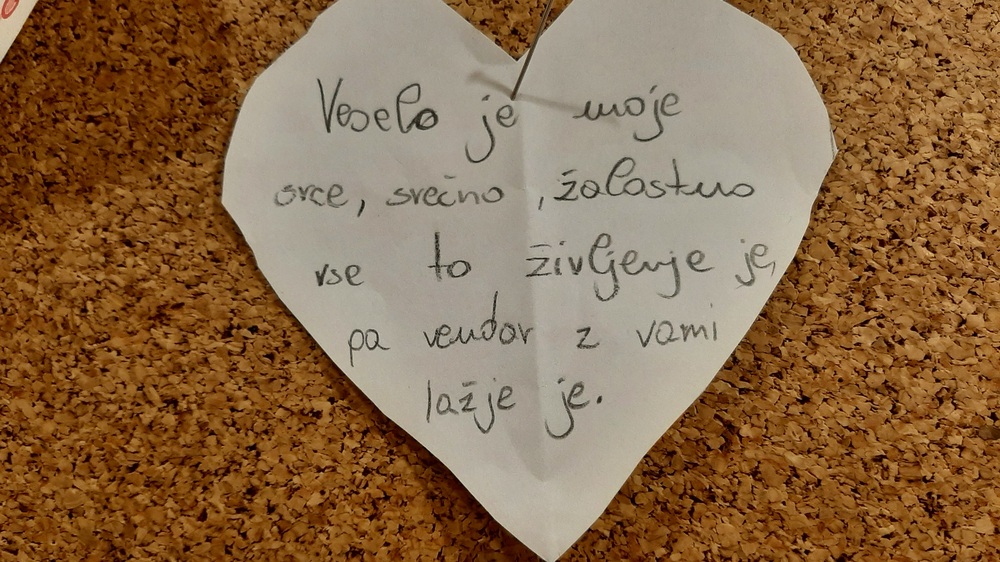 Veselo je moje
srce, srečno, žalostno
vse to življenje je,
pa vendar z vami
lažje je.